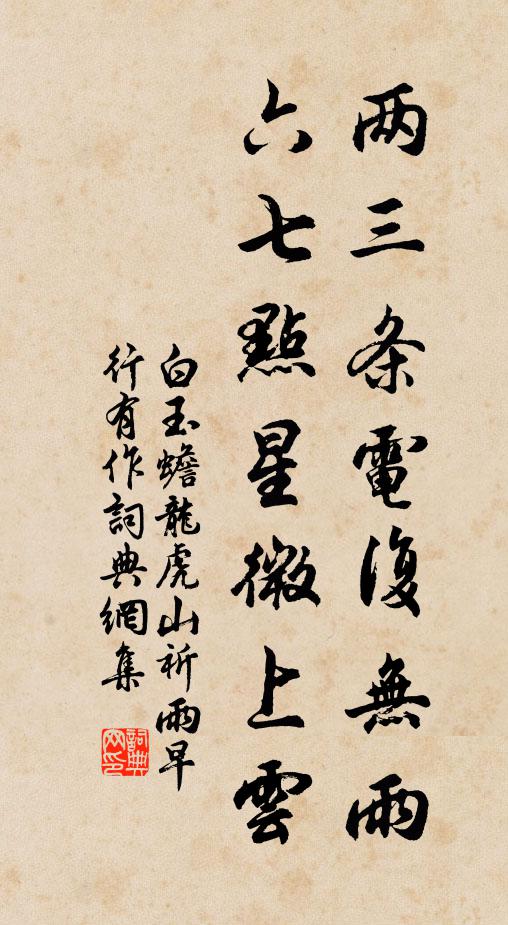 两三条電復無雨
六七點星微上雲
白玉蟾龍虎山祈雨早
行有作詞典網集
詞典
网印